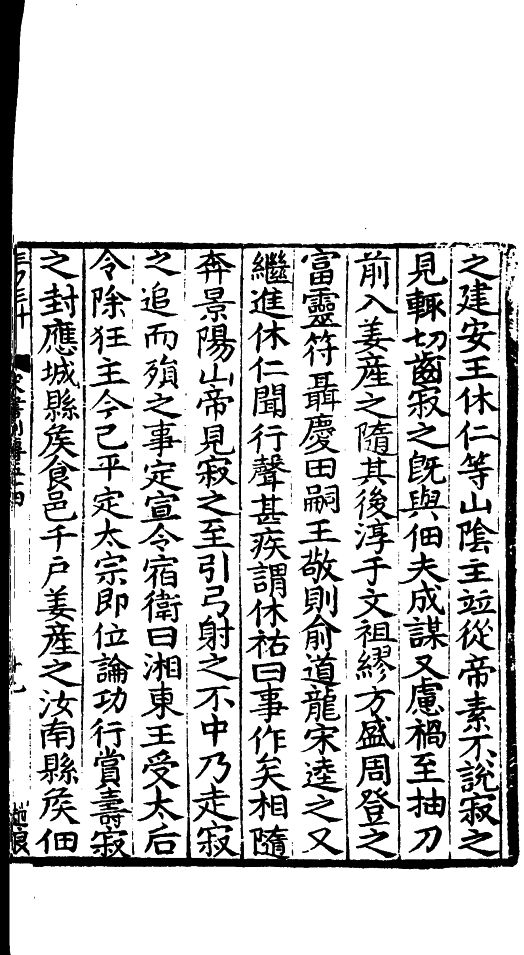 之建安王休仁等山陰主竝從帝素不說寂之
見輒切齒寂之既與佃夫成謀又慮禍至抽刀
前入姜産之隨其後淳于文祖繆方盛周登之
富靈符聶慶田嗣王敬則俞道龍宋逵之又
繼進休仁聞行聲甚疾謂休祐曰事作矣相隨
奔景陽山帝見寂之至引弓射之不中乃走寂
之追而殞之事定宣令宿衛曰湘東王受太后
令除狂主今已平定太宗即位論功行賞壽寂
之封應城縣矦食邑千戶姜産之汝南縣矦佃
宋書列傳五十四